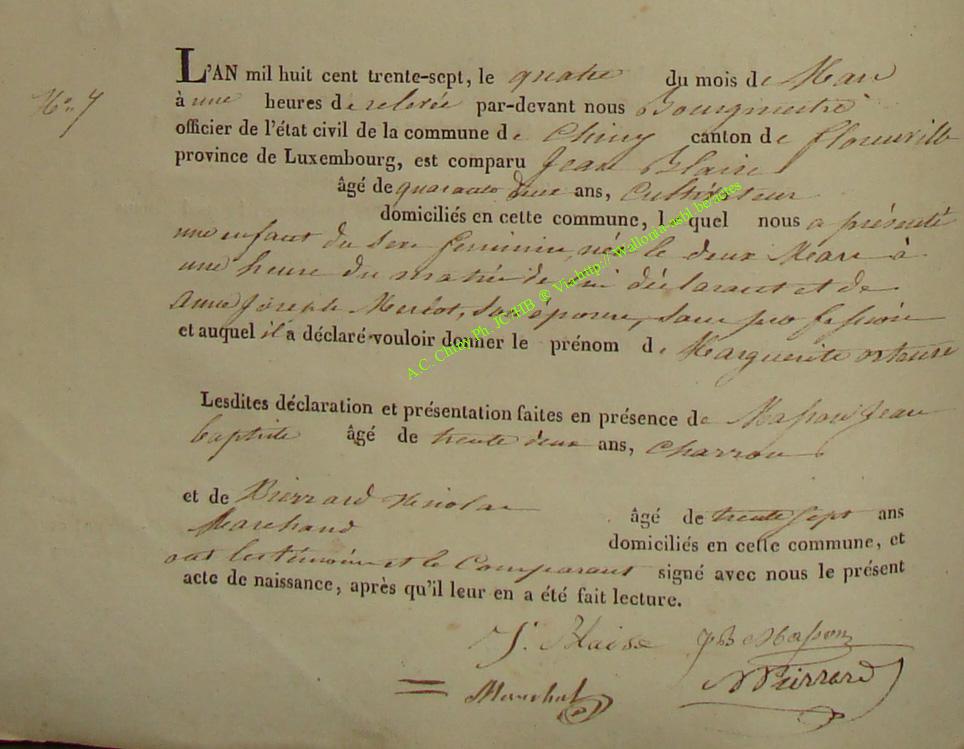 No 7
L'AN mil huit cent trente-sept, le quatre du mois de Mars
à une heures de relevée par-devant nous Bourgmestre
officier de l'état civil de la commune de Chiny canton de florenville
province de Luxembourg, est comparu Jean Blaise
âgé de quarante deux ans, Cultivateur
domiciliés en cette commune, lequel nous a présenté
une enfant du sexe feminin, née le deux Mars à
une heure du matin de lui déclarant et de
anne joseph Merlot, son épouse, sans profession
et auquel il a déclaré vouloir donner le prénom de Marguerite
Lesdites déclaration et présentation faites en présence de Masson Jean
baptiste âgé de trente deux ans, charron
et de Pierrard Nicolas
âgé de trente sept ans
Marchand
domiciliés en cette commune, et
ont les témoins et le Comparant signé avec nous le présent
acte de naissance, après qu'il leur en a été fait lecture.
J. Blaise JB Masson
Marchal NPierrard
A.C. Chiny Ph. JC HB @ Via http://Wallonia-asbl.be/actes